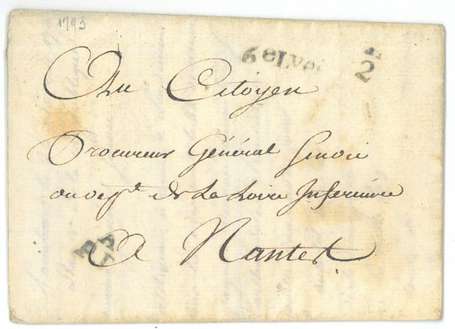 1793
6e Lvée
2
Au Citoyen
Procureur Général Sindic
du Dept. de La Loire Inferieure
A Nantes